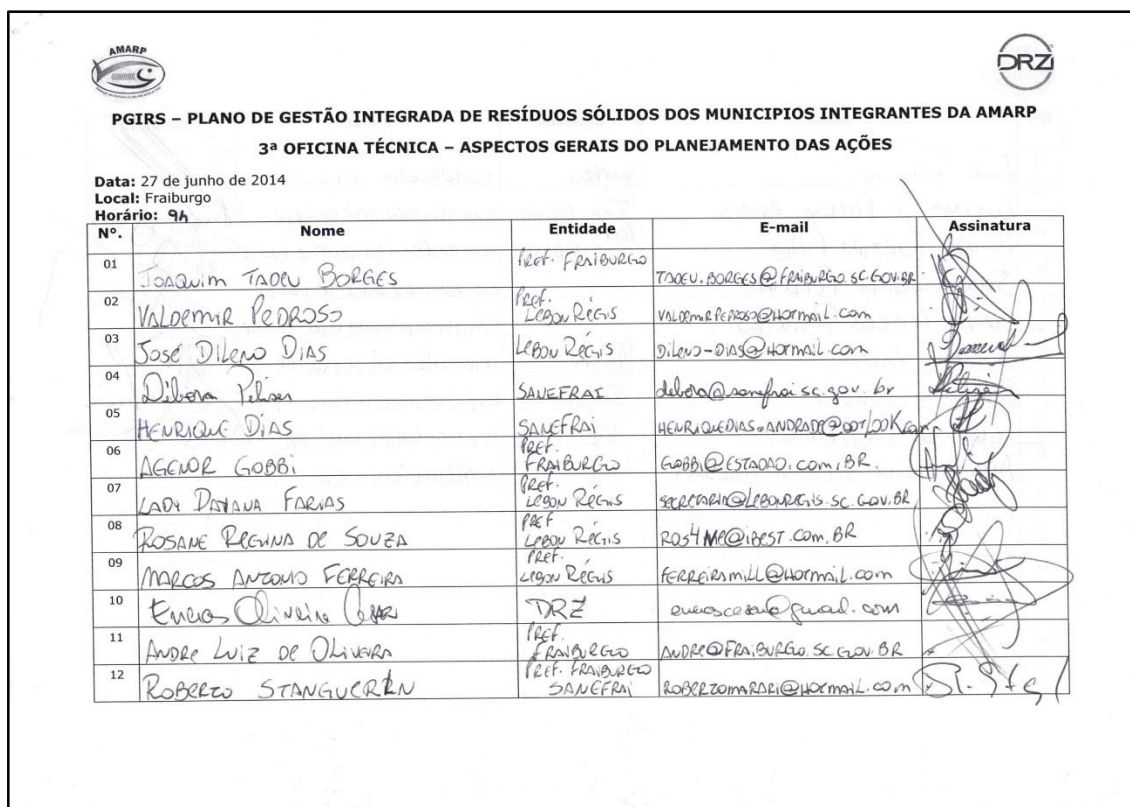 AMARP
DRZ
PGIRS – PLANO DE GESTÃO INTEGRADA DE RESÍDUOS SÓLIDOS DOS MUNICIPIOS INTEGRANTES DA AMARP
3ª OFICINA TÉCNICA – ASPECTOS GERAIS DO PLANEJAMENTO DAS AÇÕES
Data: 27 de junho de 2014
Local: Fraiburgo
Horário: 9h
Nº. Nome Entidade E-mail Assinatura
01 JOAQUIM TADEU BORGES PREF. FRAIBURGO TADEU.BORGES@FRAIBURGO.SC.GOV.BR
02 VALDEMIR PEDROSO PREF. LEBON RÉGIS VALDEMIRPEDROSO@HOTMAIL.COM
03 JOSÉ DILENO DIAS LEBON RÉGIS DILENO-DIAS@HOTMAIL.COM
04 Débora SANEFRAI debora@sanefrai.sc.gov.br
05 HENRIQUE DIAS SANEFRAI HENRIQUEDIAS.ANDRADE@OUTLOOK.com
06 AGENOR GOBBI PREF. FRAIBURGO GOBBI@ESTADAO.COM.BR.
07 LADY DAYANA FARIAS PREF. LEBON RÉGIS SECRETARIA@LEBONREGIS.SC.GOV.BR
08 ROSANE REGINA DE SOUZA PREF LEBON RÉGIS ROS4ME@IBEST.COM.BR
09 MARCOS ANTONIO FERREIRA PREF. LEBON RÉGIS FERREIRAMILL@HOTMAIL.COM
10 Eneias Oliveira Cesar DRZ
11 ANDRE LUIZ DE OLIVEIRA PREF. FRAIBURGO ANDRE@FRAIBURGO.SC.GOV.BR
12 ROBERTO PREF. FRAIBURGO SANEFRAI ROBERTOMARARI@HOTMAIL.COM